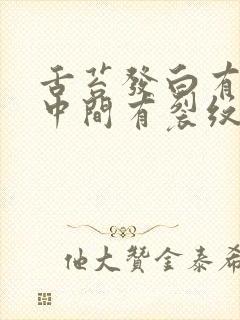 舌苔發白有
中間有裂紋
他大贊金泰希